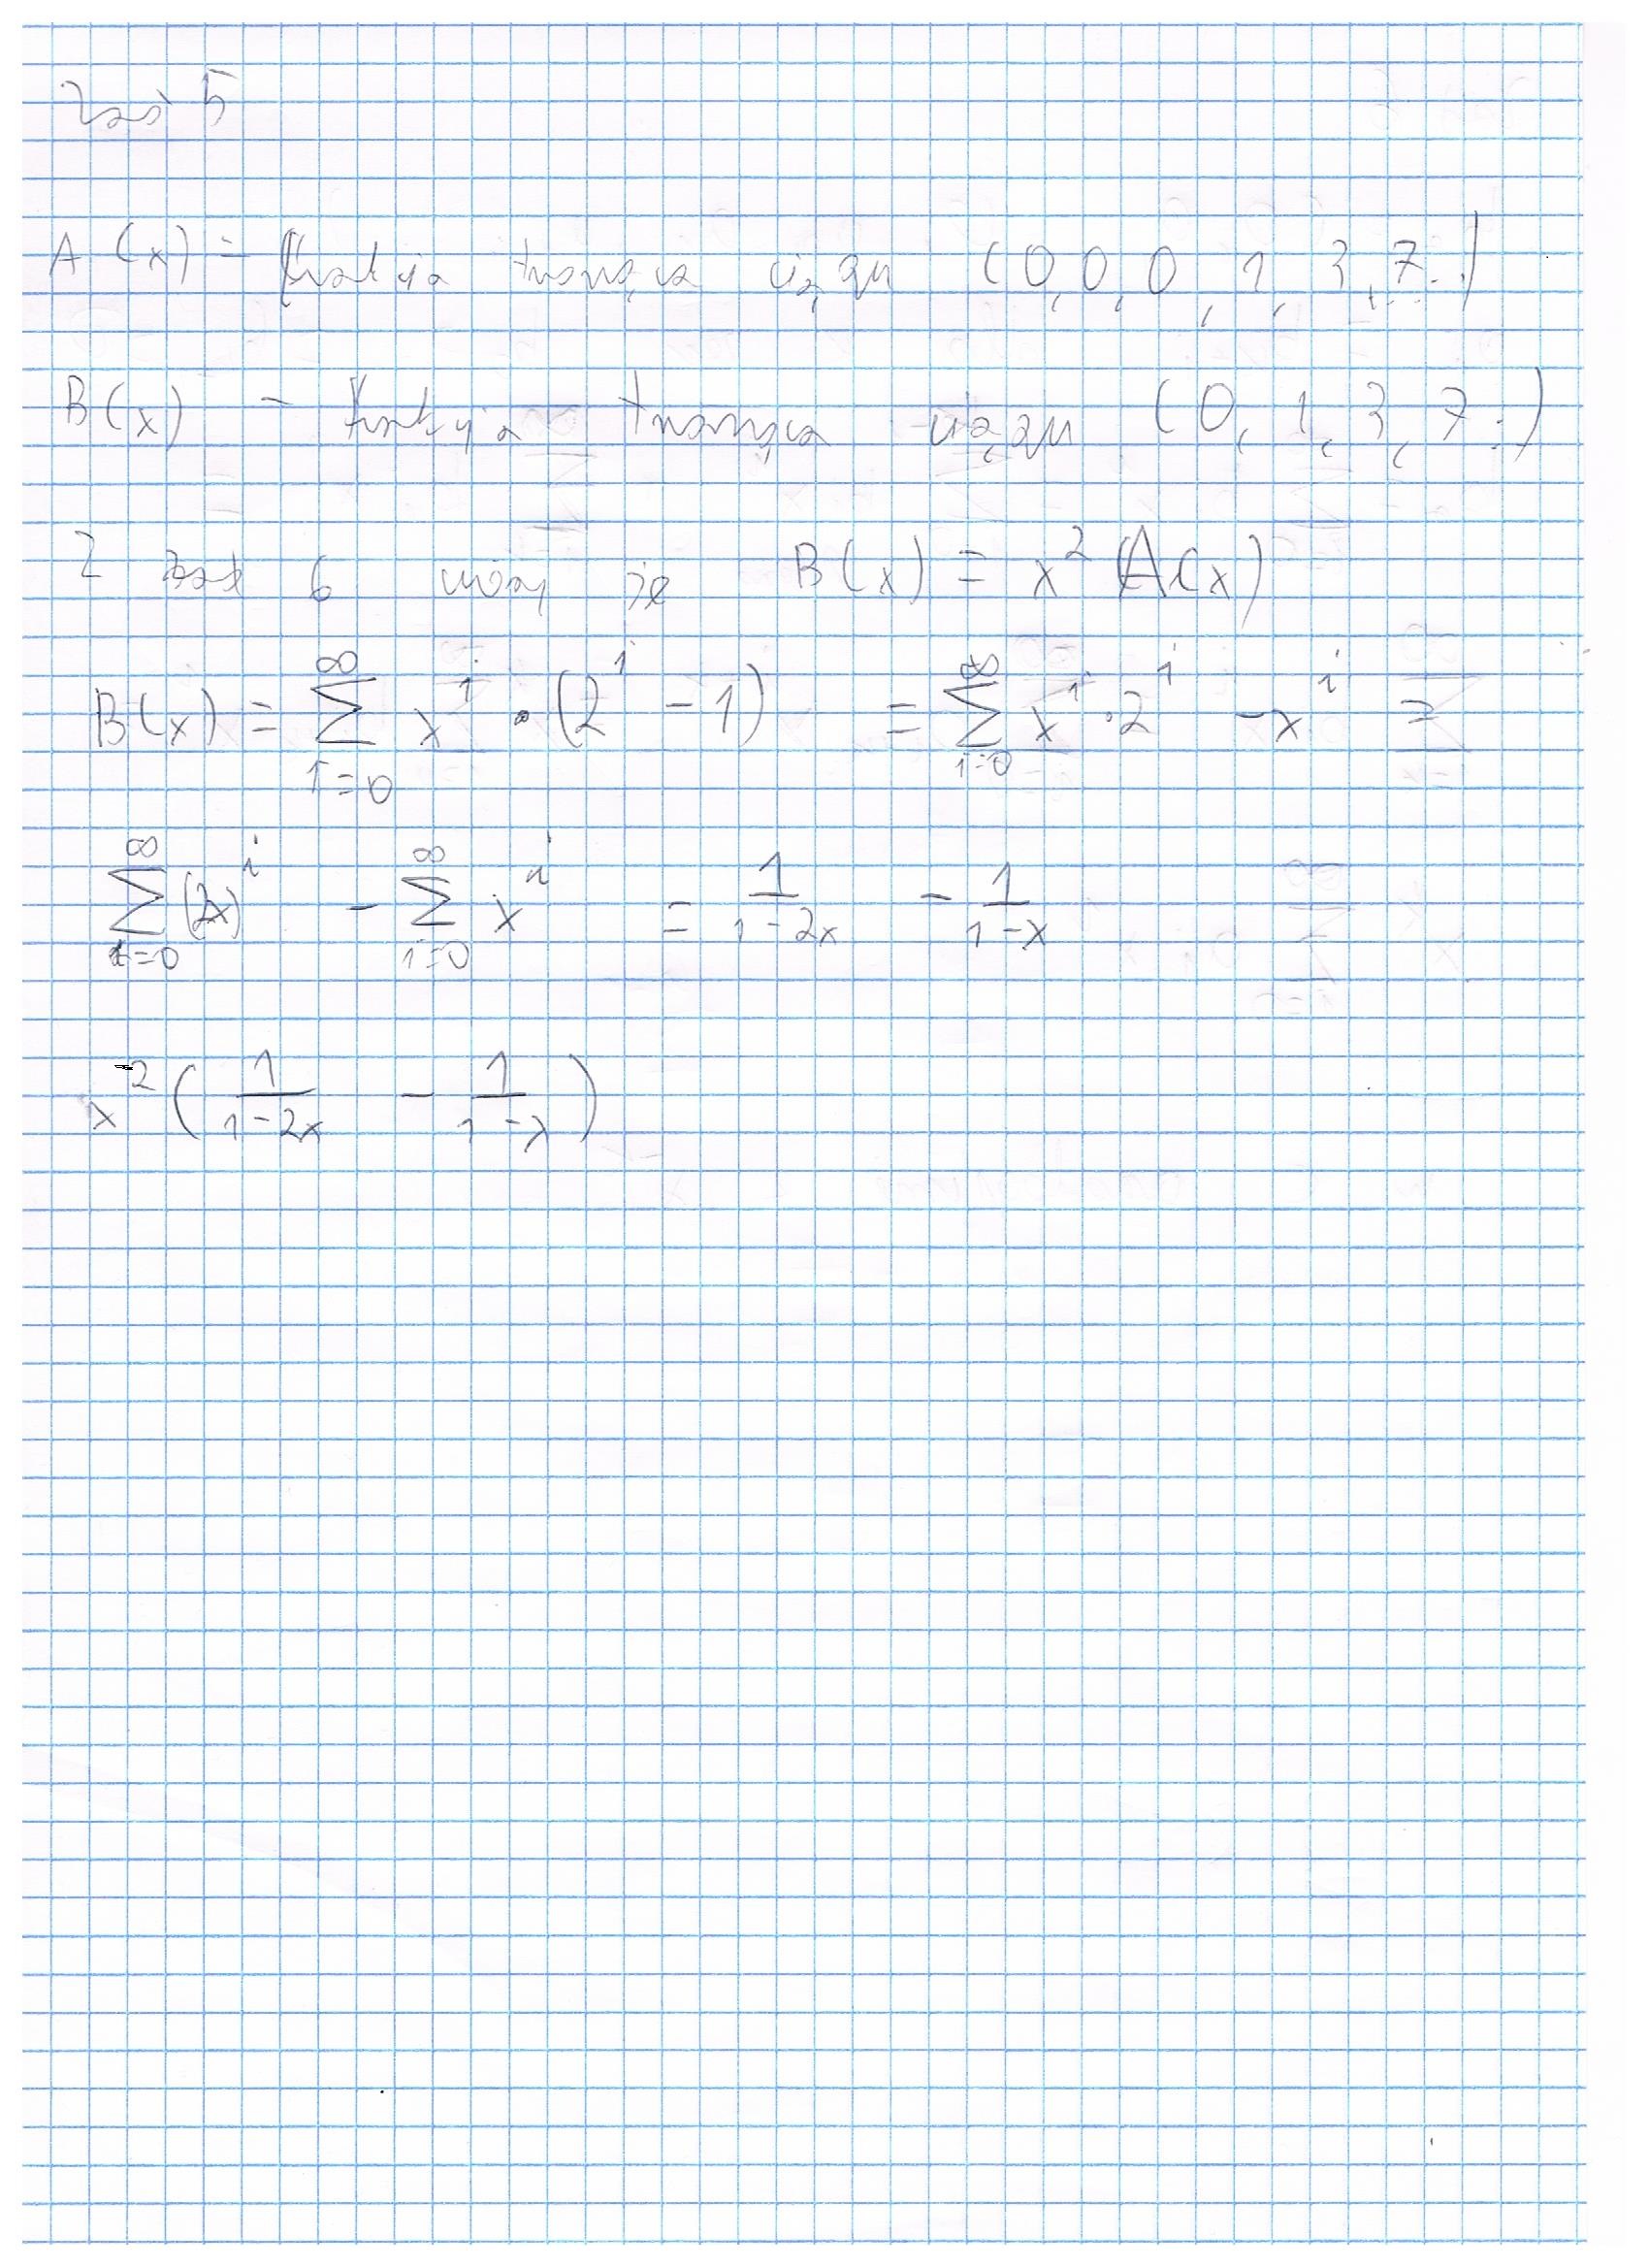 Zad 5
A(x) - funkcja tworząca ciągu (0, 0, 0, 1, 3, 7...)
B(x) - funkcja tworząca ciągu (0, 1, 3, 7..)
Z zad 6 wiemy że B(x) = x^2 (A(x)
B(x) = ∑_{i=0}^{∞} x^i · (2^i - 1) = ∑_{i=0}^{∞} x^i · 2^i - x^i =
∑_{i=0}^{∞} (2x)^i - ∑_{i=0}^{∞} x^i = 1/(1-2x) - 1/(1-x)
x^{-2} (1/(1-2x) - 1/(1-x))